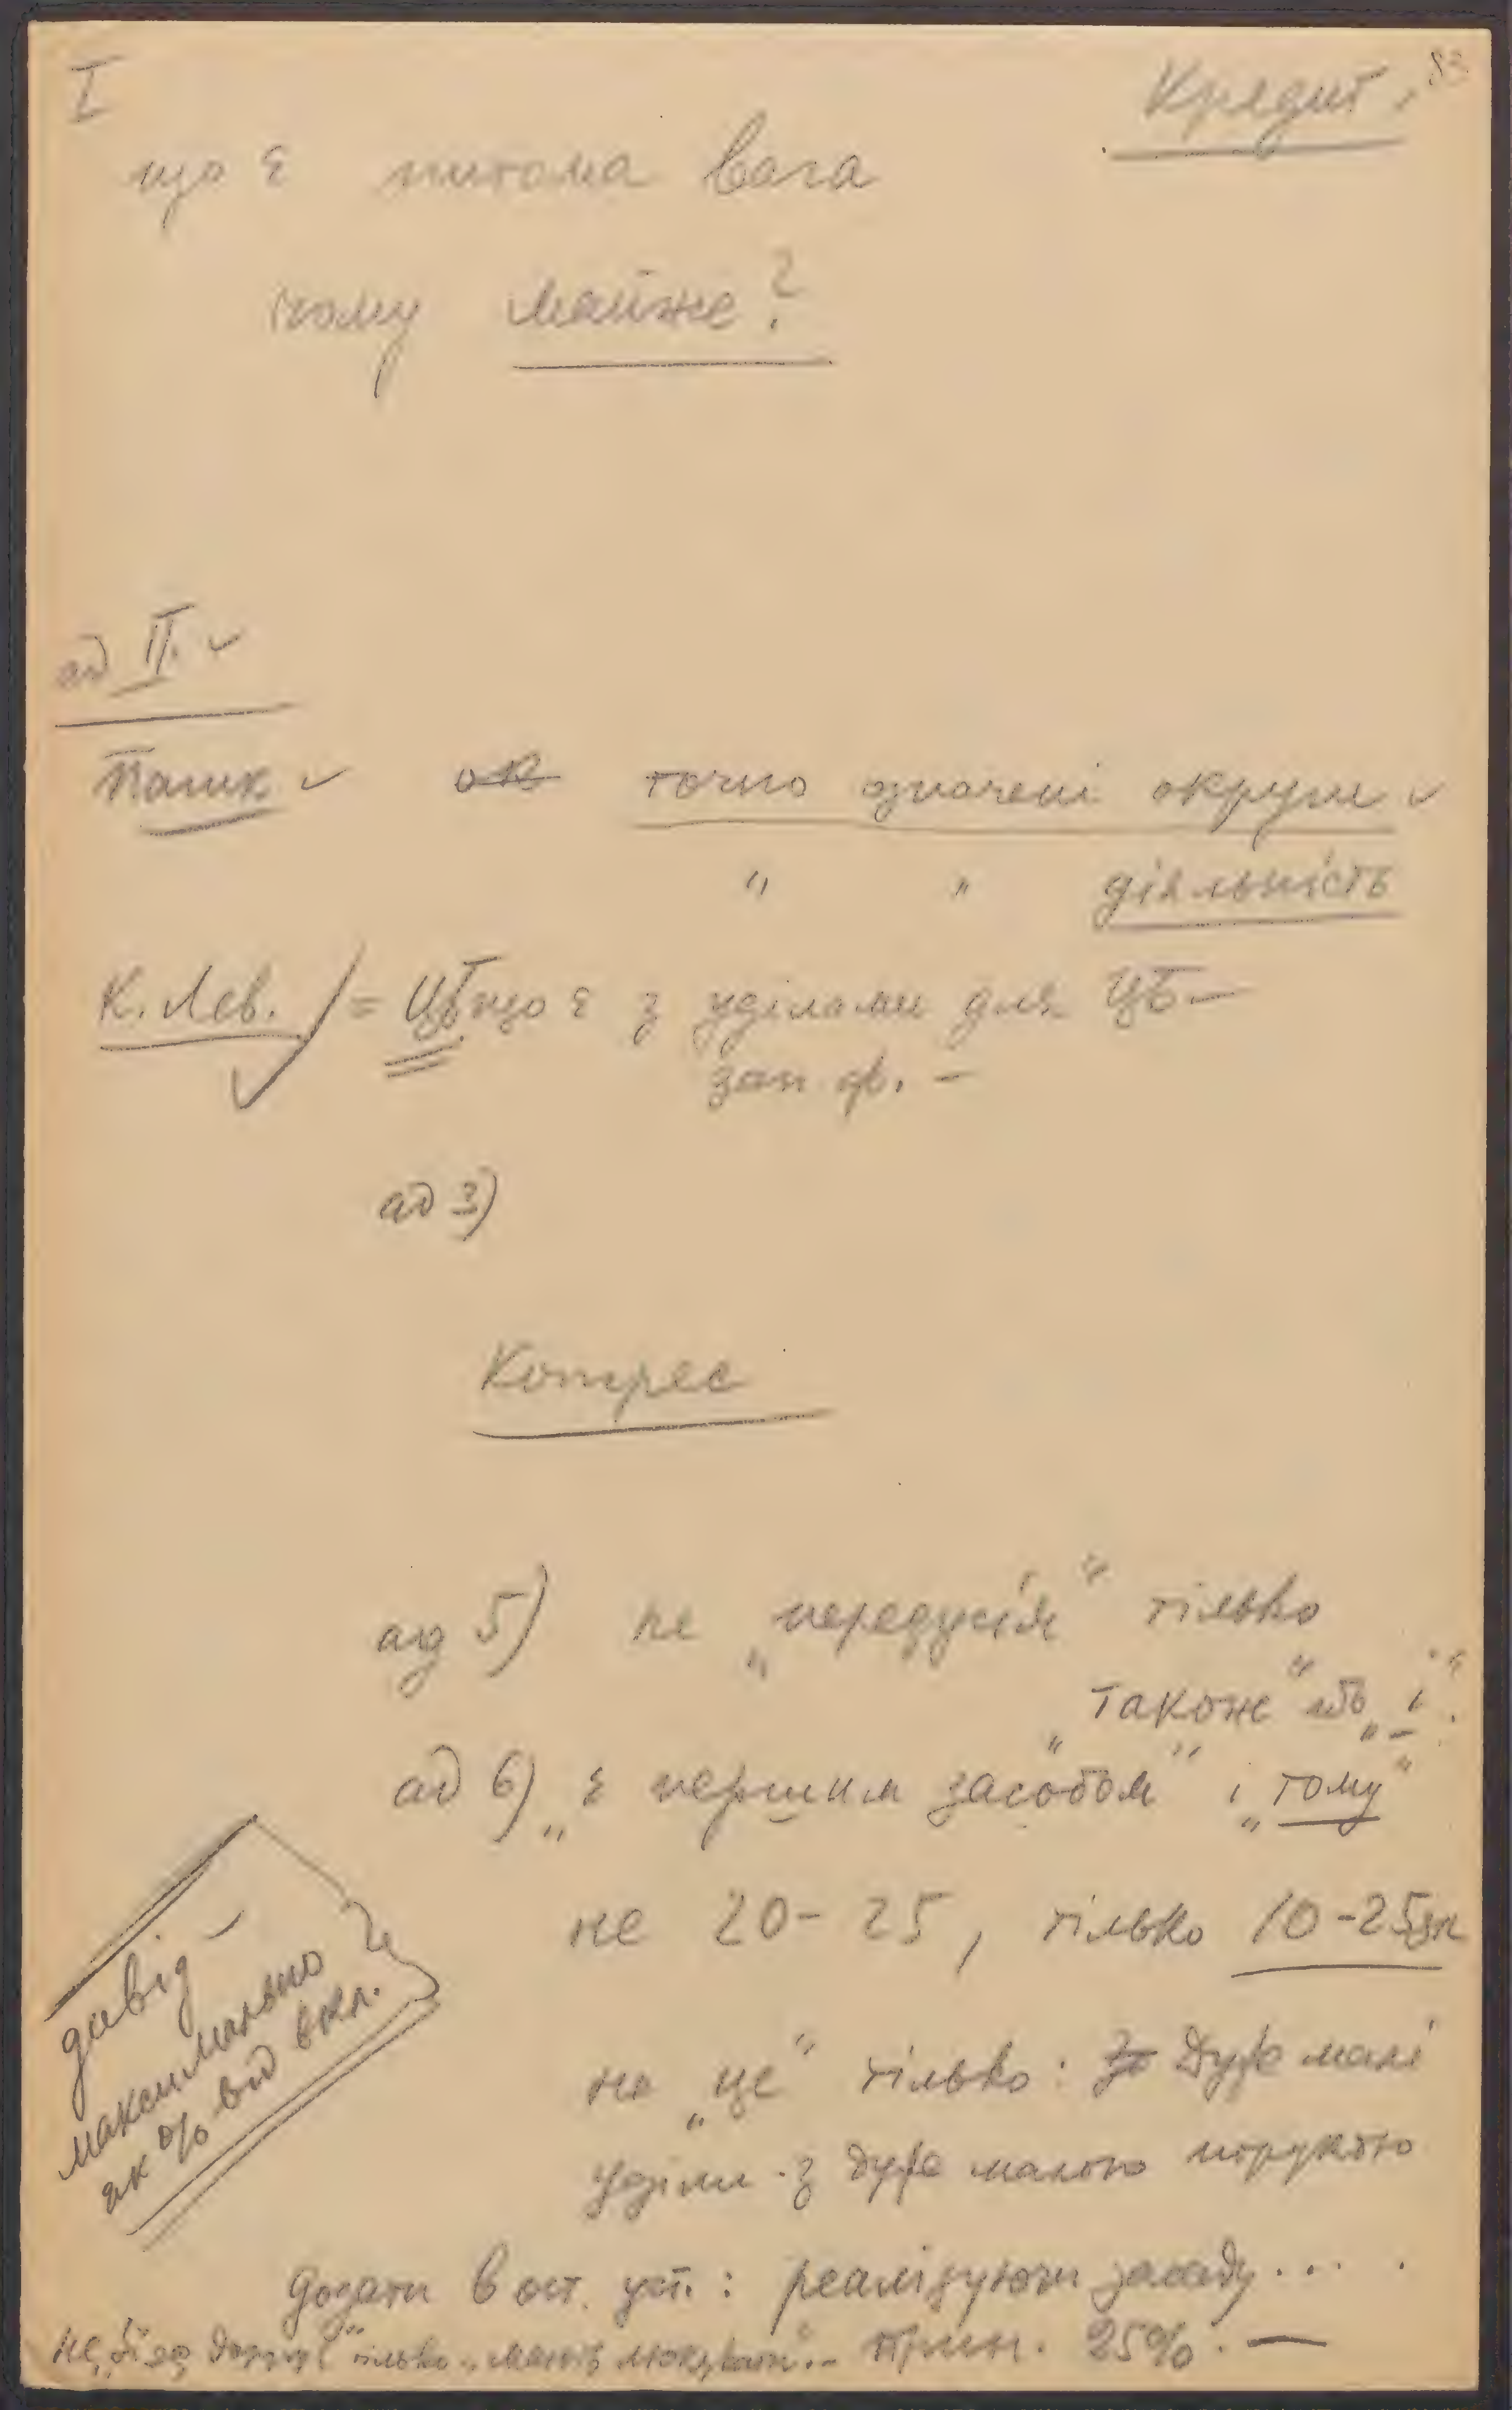 I
Кредит. 83
що є питома вага
чому майже?
ад II.
Пашк ок точно означені округи
" " діяльність
К. Лев. = ЦБ що є з уділами для ЦБ —
зап. ф. —
ад 3)
Конгрес
ад 5) не „передусім“ тілько
„також“ або „і“.
ад 6) „є першим засобом“ і „тому“
не 20 - 25, тілько 10 - 25 зл
не „це“ тілько: Дуже малі
уділи з дуже малою порукою
дивід —
максимально
як % від вкл.
додати в ост. уст.: реалізуючи засаду....
не тілько „мають льокувати“. — прин. 25%. —